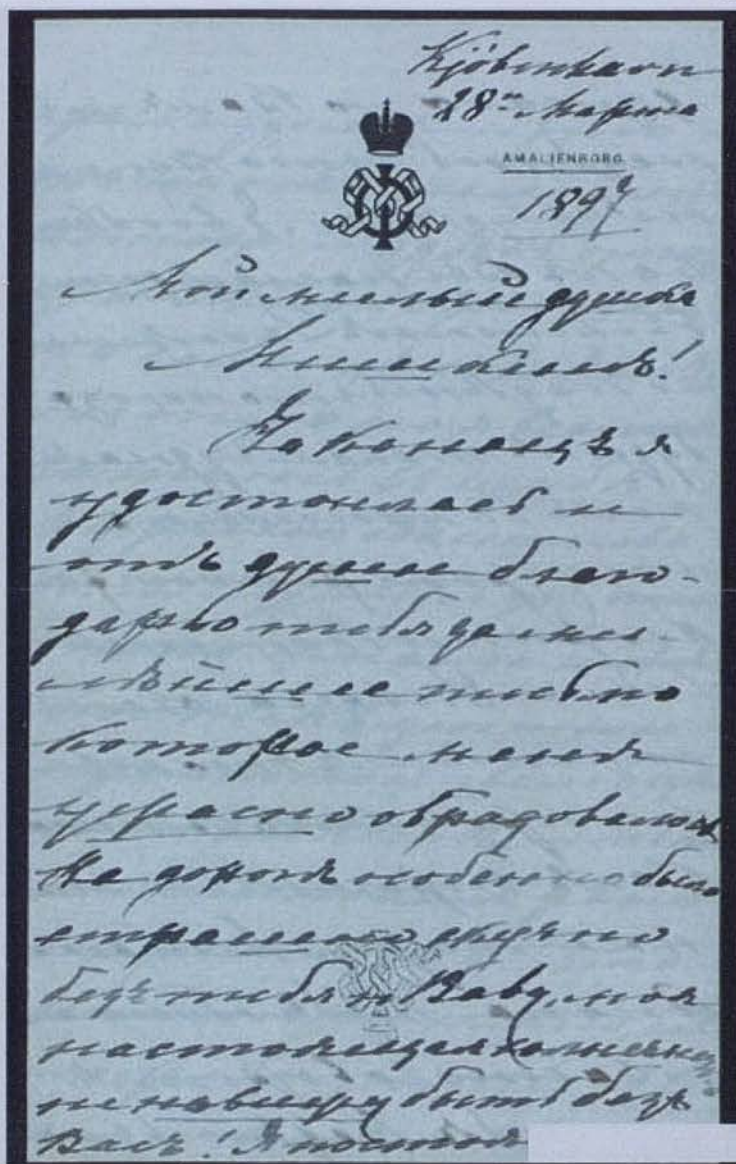 Kjöbenhavn
28го Марта
AMALIENBORG
1897
Мой милый душка
Мишкинъ!
Наконецъ я
удостоилась и
отъ души благо-
дарю тебя за ми-
лѣйшее письмо
которое меня
ужасно обрадовало
На дняхъ особенно было
страшно скучно
безъ тебя и
настоящая
не быть безъ
Васъ! Я